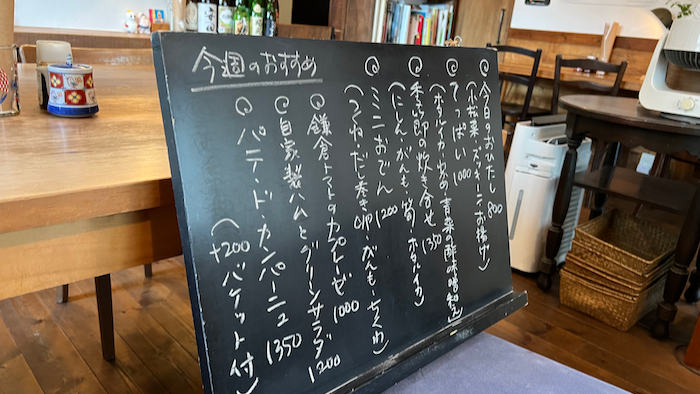 今週のおすすめ
今日のおひたし 800
(小松菜・ズッキーニ・お揚げ)
てっぱい 1000
(ホタルイカ・わかめ・青菜の酢味噌和え)
季節の炊き合せ 1350
(にしん・がんも・筍・ホタルイカ)
ミニおでん 1200
(つくね・だし巻き卵・がんも・ちくわ)
鎌倉トマトのカプレーゼ 1000
自家製ハムとグリーンサラダ 1200
パテ・ド・カンパーニュ 1350
(+200 バゲット付)